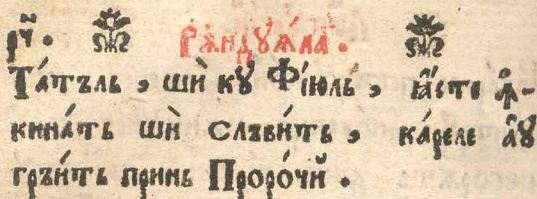 рч҃ . Рѫндꙋѧ́ла .
Та́тъль , шѝ кꙋ Фі́юль , ꙗ҆́сте ꙟ҆-
кина́ть шѝ слъви́ть , ка́реле а҆ꙋ
гръи́ть принь Проро́чїй .